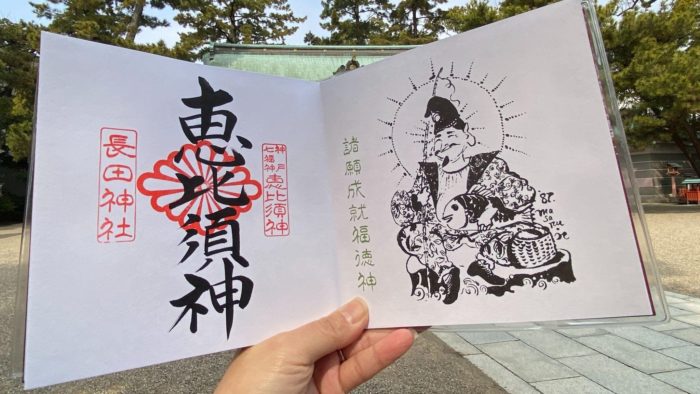 諸願成就福徳神
87.
神戸
七福神
恵比須神
恵比須神
長田神社